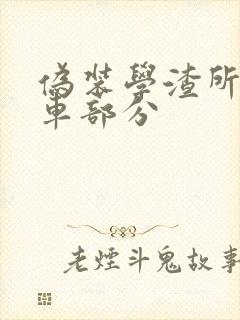 偽裝學渣所
車部分
老煙斗鬼故事